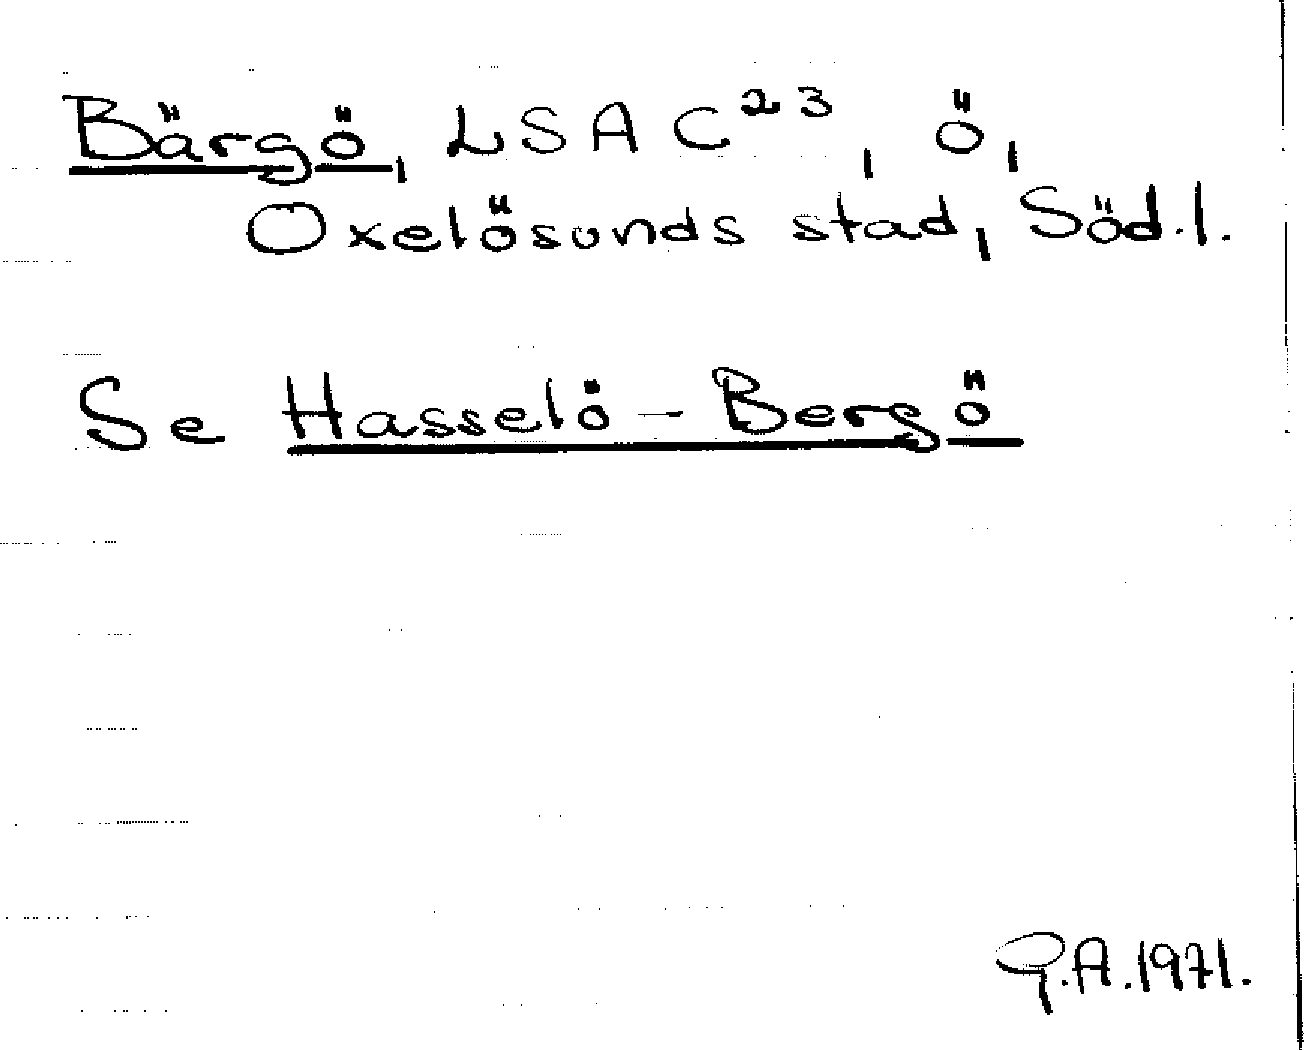 Bärgö, LSA C²³, ö,
Oxelösunds stad, Söd.l.
Se Hasselö - Bergö
G.A. 1971.